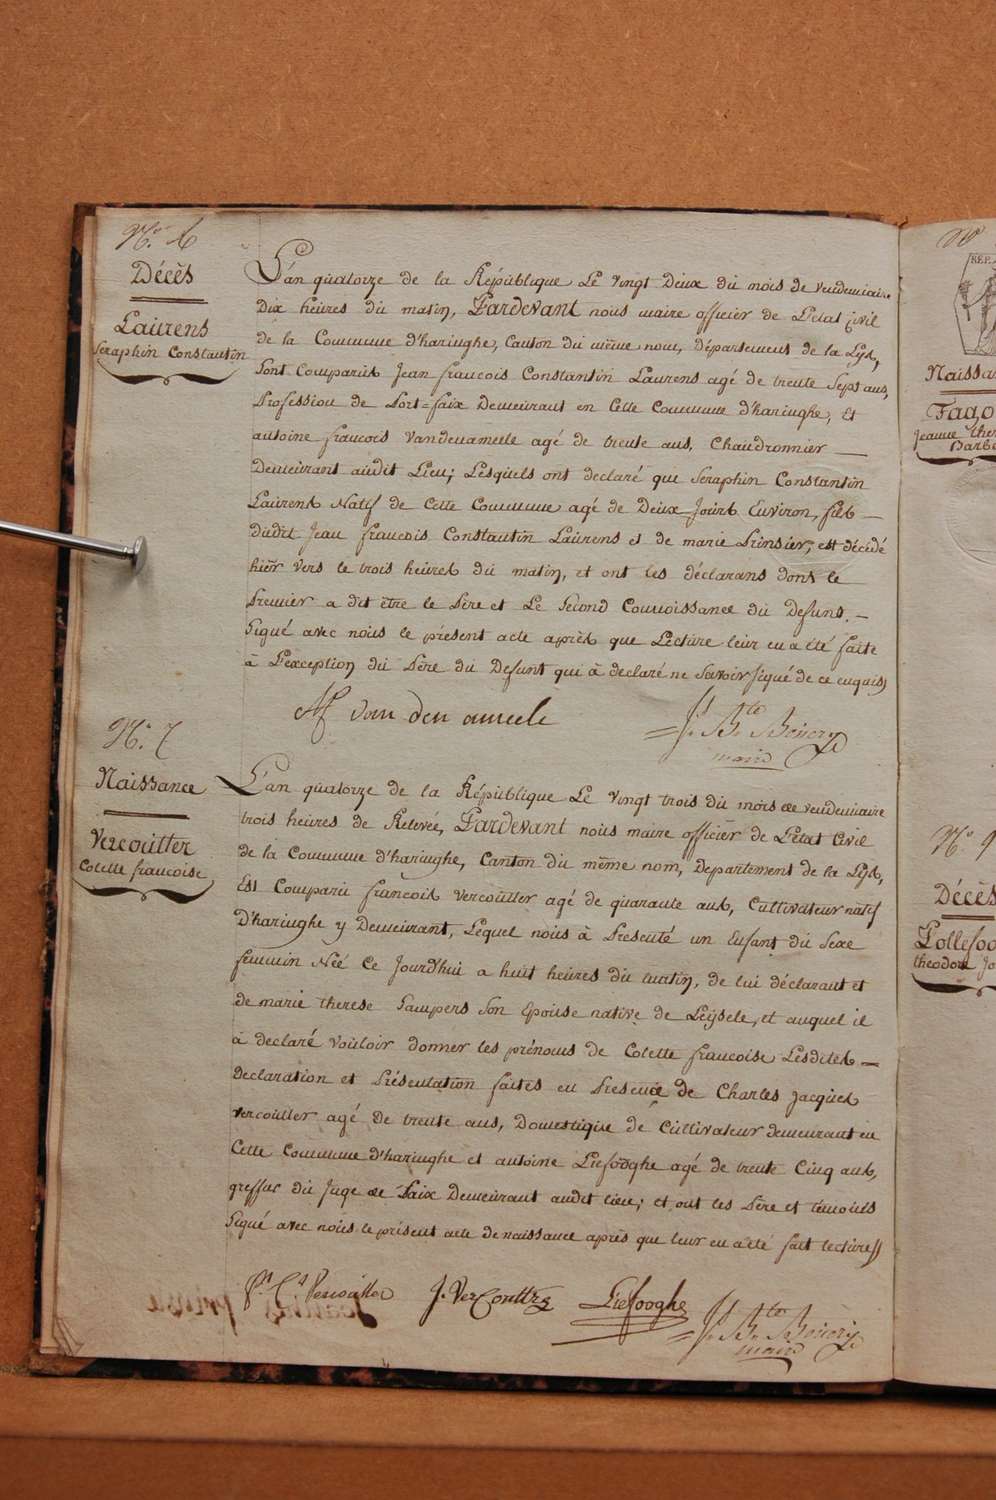 N.° 6
Décès
Laurens
Seraphin Constantin
L'an quatorze de la République Le vingt Deux du mois de vendemiaire
Dix heures du matin, Pardevant nous maire officier de L'etat civil
de la Commune d'haringhe, Canton du même nom, Département de la Lys,
Sont Comparus Jean francois Constantin Laurens agé de trente Sept ans,
Profession de Port=faix Demeurant en Cette Commune d'haringhe, Et
antoine francois Vandenameele agé de trente ans, Chaudronnier —
Demeurant audit Lieu; Lesquels ont declaré que Seraphin Constantin
Laurens Natif de Cette Commune agé de Deux Jours Environ, fils —
dudit Jean francois Constantin Laurens et de marie Prinsier, est décédé
hier vers le trois heures du matin, et ont les déclarans dont le
Premier a dit être le Père et Le Second Connoissance du Defunt. —
Signé avec nous le présent acte après que Lecture leur en a été faite
à L'exception du Père du Defunt qui à declaré ne Savoir signé de ce enquis
AF van den ameele
J. B.te Bouery
maire
N.° 7
Naissance
Vercoutter
Colette francoise
L'an quatorze de la République Le vingt trois du mois de vendemiaire
trois heures de Relevée, Pardevant nous maire officier de L'etat Civil
de la Commune d'haringhe, Canton du même nom, Departement de la Lys,
Est Comparu francois Vercoutter agé de quarante ans, Cultivateur natif
D'haringhe y Demeurant, Lequel nous à Presenté un Enfant du Sexe
feminin Néé Ce Jourd'hui a huit heures du matin, de lui déclarant et
de marie therese Sampers Son Epouse native de Leijsele, et auquel il
à declaré vouloir donner les prénoms de Colette francoise Lesdites —
Declaration et Présentation faites en Presence de Charles Jacques
vercoutter agé de trente ans, Domestique de Cultivateur demeurant en
Cette Commune d'haringhe et antoine Liefooghe agé de trente Cinq ans,
greffier du Juge de Paix Demeurant audit lieu; et ont les Père et témoins
Signé avec nous le présent acte de naissance après que leur en a été fait lecture
J. Vercouttre
Liefooghe
J. B.te Bouery
maire
N°
REP.
Naissan
Fago
Jeanne ther
Barbe
N.° 9
Décès
Lollefoo
theodore Jo